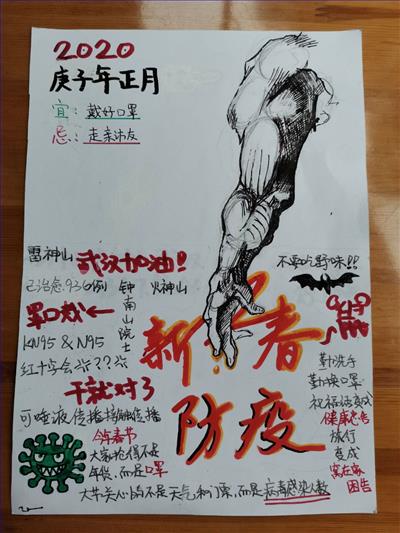 2020
庚子年正月
宜：戴好口罩
忌：走亲访友
雷神山
武汉加油!!
已治愈936例
钟南山院士
火神山
不要吃野味!!
KN95 & N95
红十字会※??※
干就对了
可唾液传播接触传播
新春
防疫
勤洗手
勤换口罩
祝福话变成
健康忠告
旅行
变成
窝在家
困告
今年春节
大家抢得不是
年货,而是口罩
大去关心的不是天气和门票,而是病毒感染人数